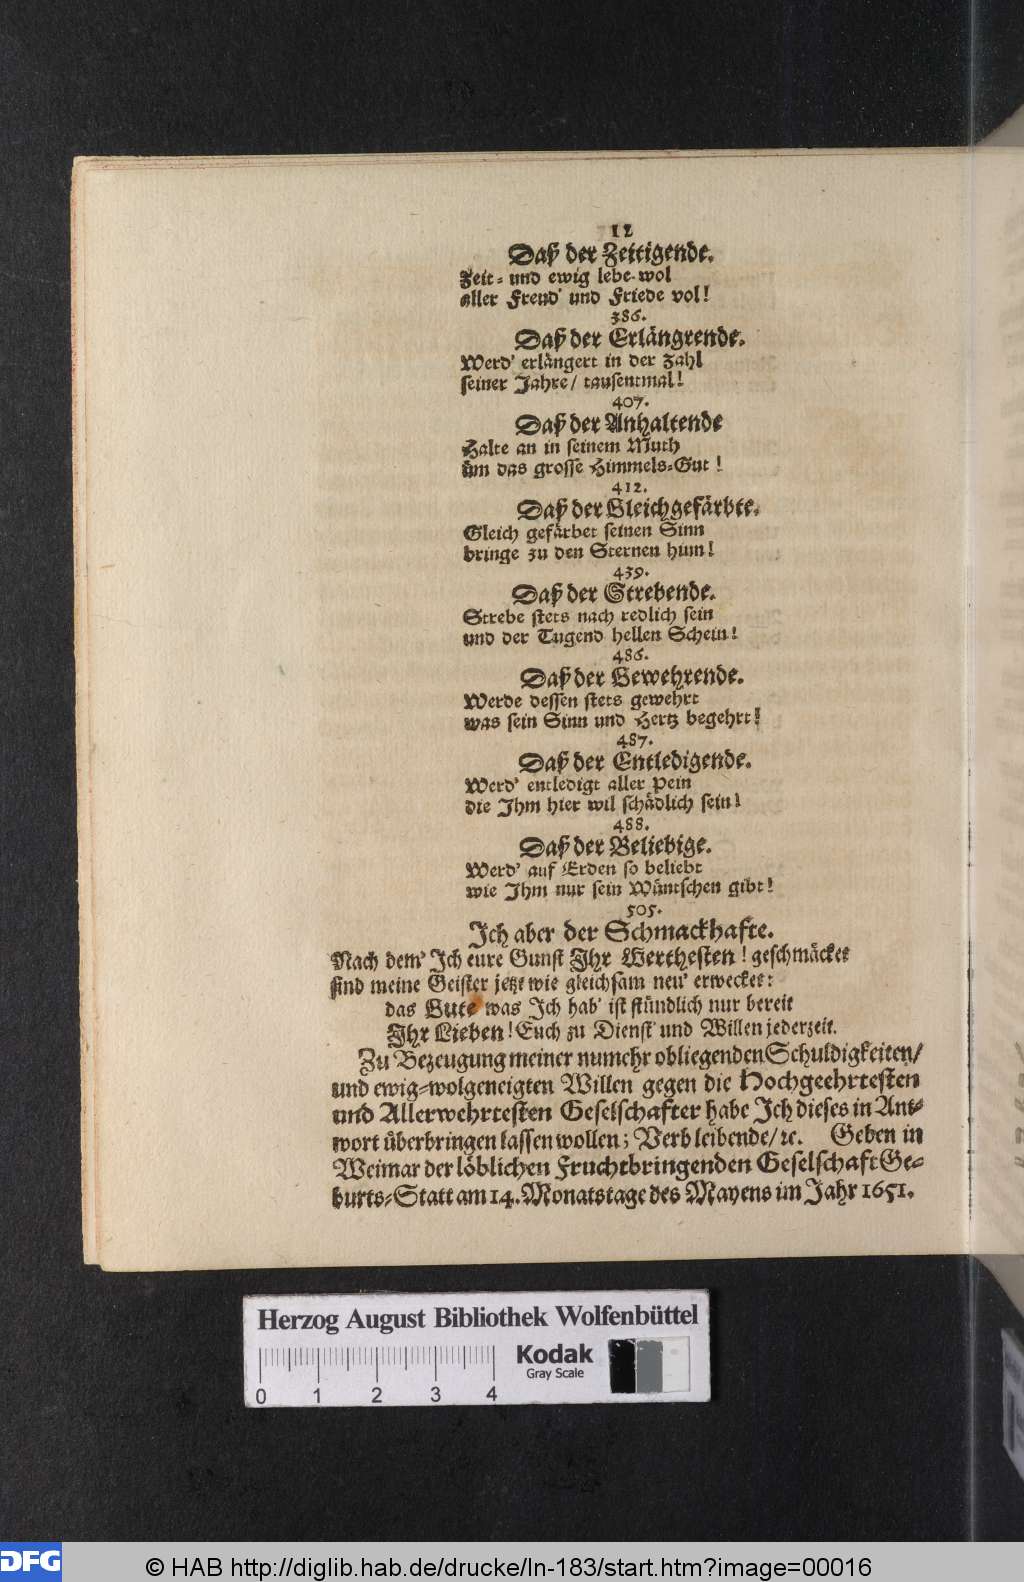 12
Daß der Zeitigende.
Zeit- und ewig lebe wol
aller Freud' und Friede vol!
386.
Daß der Erlängrende.
Werd' erlängert in der Zahl
seiner Jahre/ tausentmal!
407.
Daß der Anhaltende
Halte an in seinem Muth
üm das grosse Himmels-Gut!
412.
Daß der Gleichgefärbte.
Gleich gefärbet seinen Sinn
bringe zu den Sternen hinn!
439.
Daß der Strebende.
Strebe stets nach redlich sein
und der Tugend hellen Schein!
486.
Daß der Gewehrende.
Werde dessen stets gewehrt
was sein Sinn und Hertz begehrt!
487.
Daß der Entledigende.
Werd' entledigt aller Pein
die Ihm hier wil schädlich sein!
488.
Daß der Beliebige.
Werd' auf Erden so beliebt
wie Ihm nur sein Wüntschen gibt!
505.
Ich aber der Schmackhafte.
Nach dem' Ich eure Gunst Ihr Werthesten! geschmäcket
sind meine Geister jetzt wie gleichsam neu' erwecket:
das Gute was Ich hab' ist stündlich nur bereit
Ihr Lieben! Euch zu Dienst' und Willen jederzeit.
Zu Bezeugung meiner numehr obliegenden Schuldigkeiten/
und ewig-wolgeneigten Willen gegen die Hochgeehrtesten
und Allerwehrtesten Geselschafter habe Ich dieses in Ant-
wort überbringen lassen wollen; Verbleibende/ ꝛc. Geben in
Weimar der löblichen Fruchtbringenden Geselschaft Ge-
burts-Statt am 14. Monatstage des Mayens im Jahr 1651.
Herzog August Bibliothek Wolfenbüttel
Kodak
Gray Scale
0 1 2 3 4
DFG
© HAB http://diglib.hab.de/drucke/ln-183/start.htm?image=00016